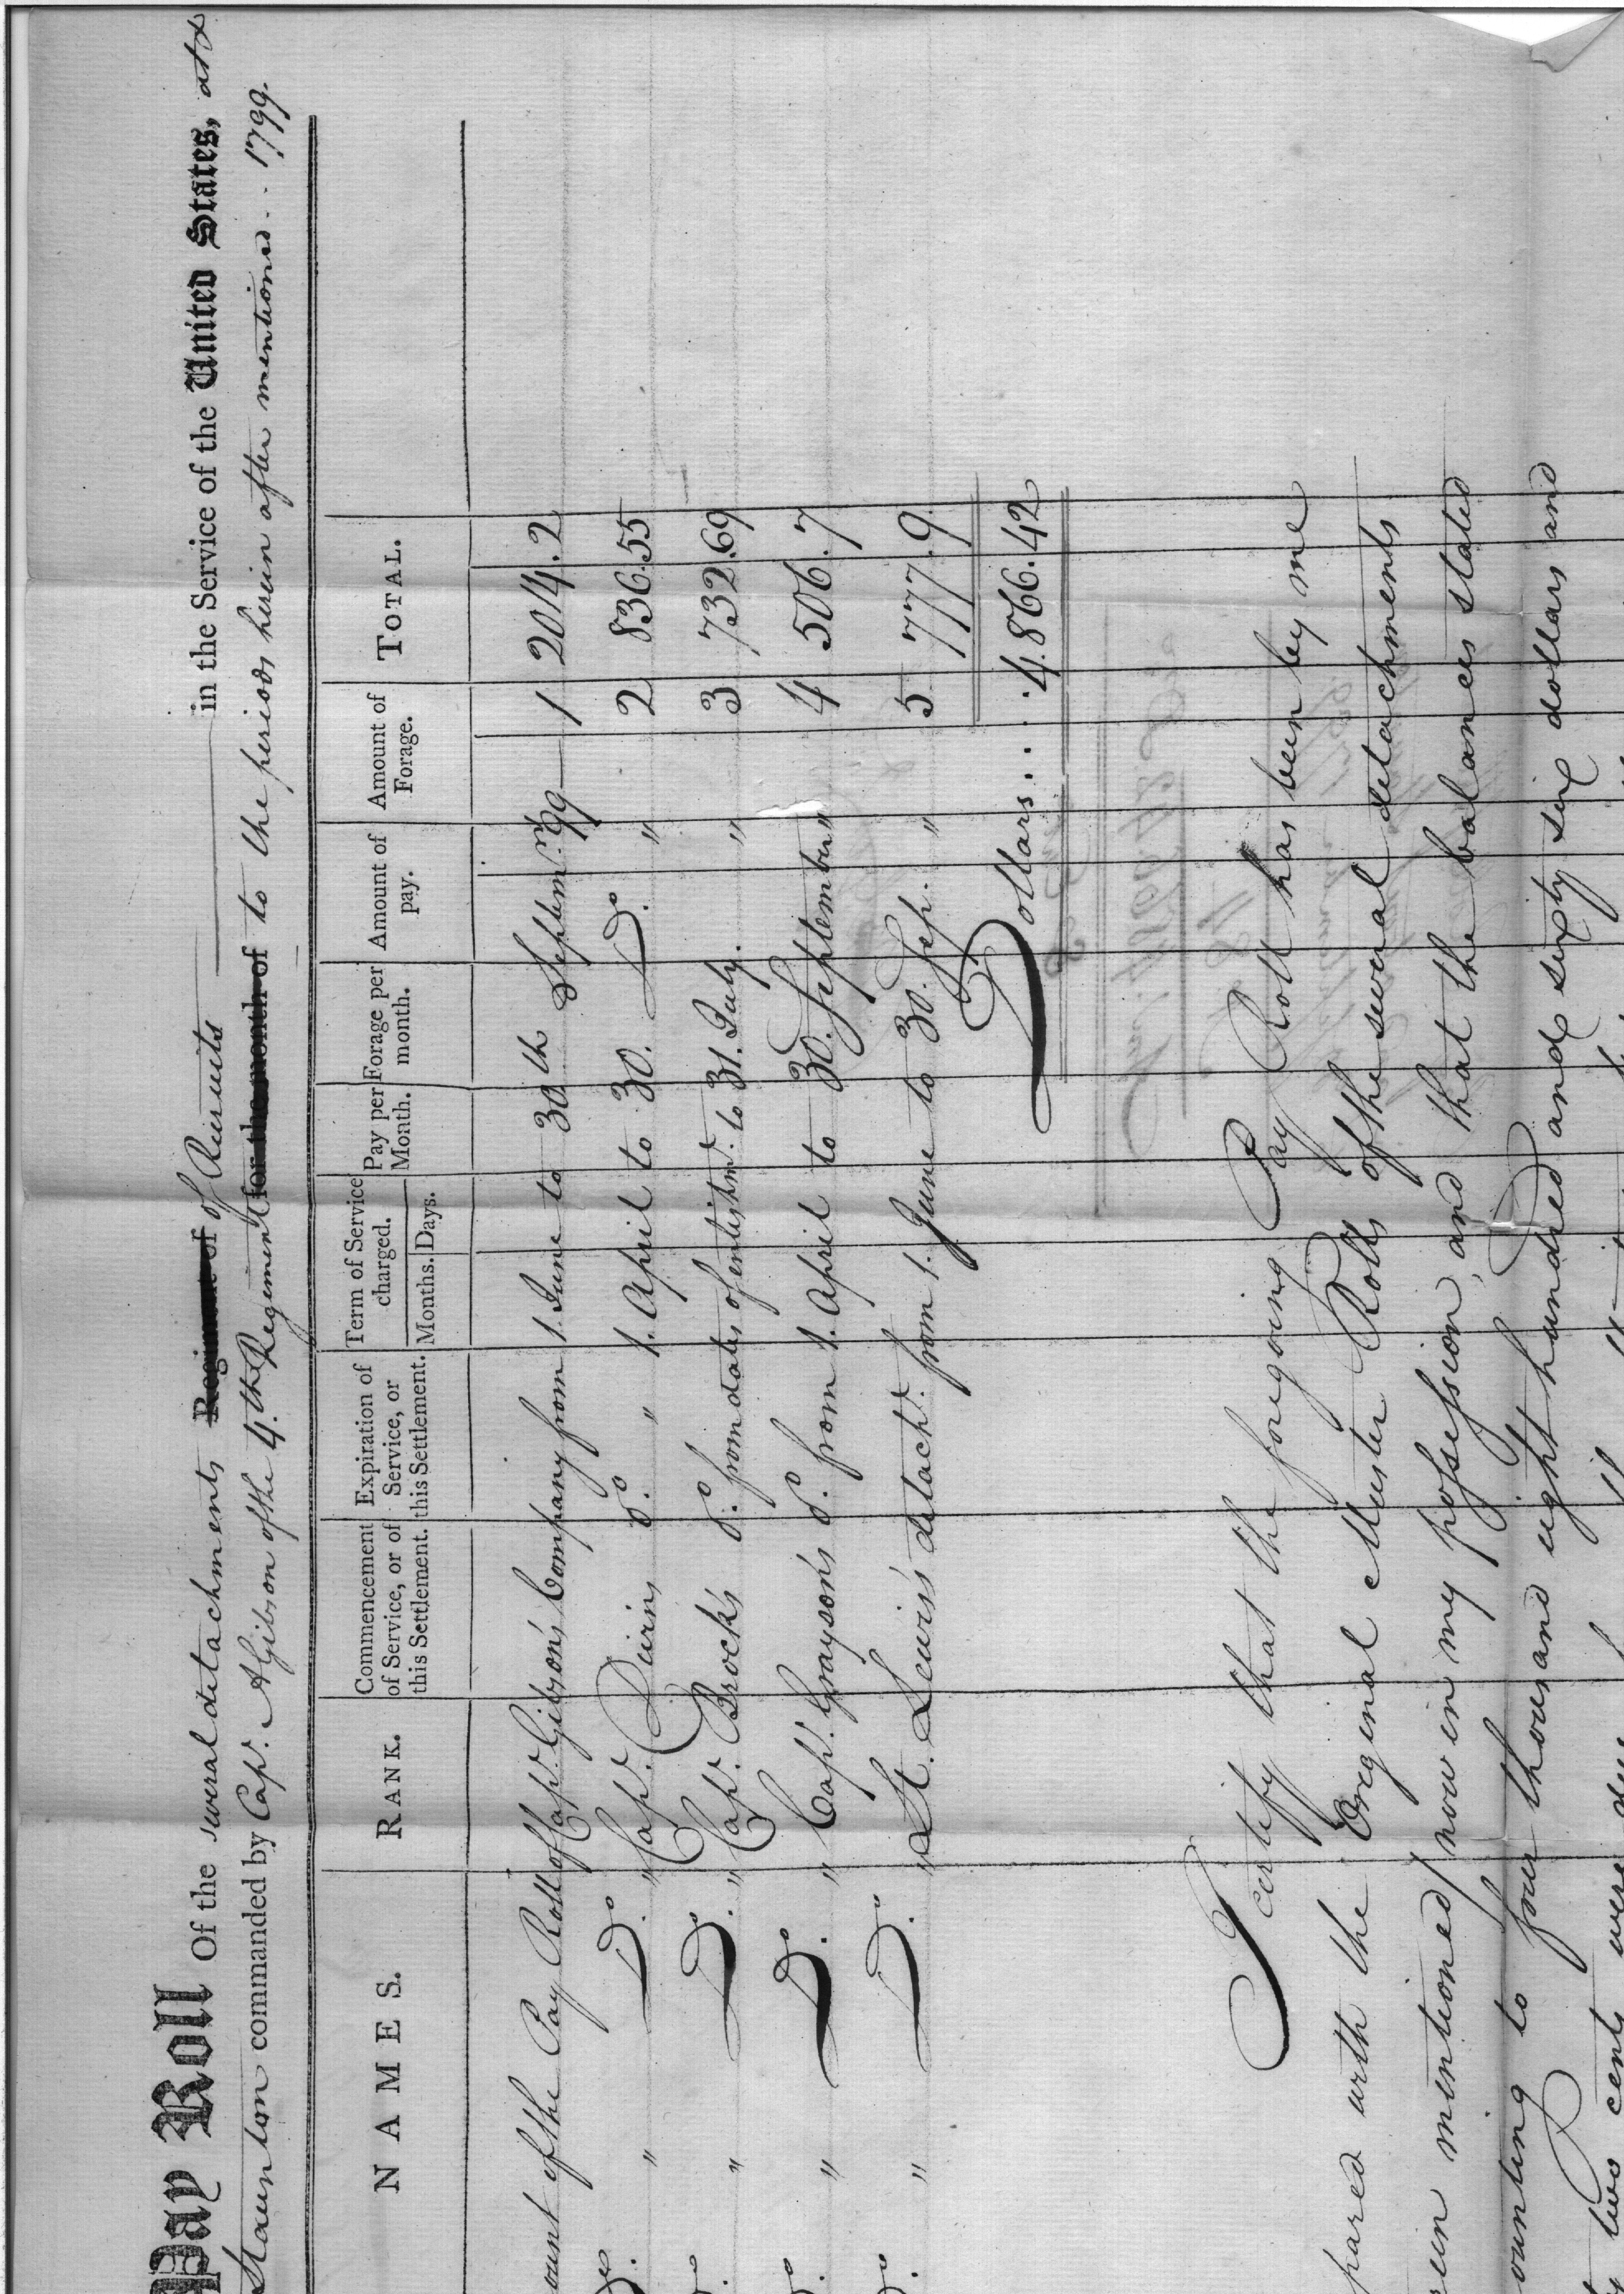 Pay Roll Of the several detachments Regiment of of Recruits in the Service of the United States, at
Staunton commanded by Capt. A Gibson of the 4.th Regiment for the month of to the periods herein after mentioned .. 1799.
NAMES. RANK. Commencement of Service, or of this Settlement. Expiration of Service, or this Settlement. Term of Service charged. Months. Days. Pay per Month. Forage per month. Amount of pay. Amount of Forage. TOTAL.
ount of the Pay Roll of Capt. Gibson's Company from 1. June to 30th Septemr. 99 1 2014.2
" Do. " Capt. do. " 1. April to 30. Do. " 2 836.55
" Do. " Capt. Brock's do. from dates of enlistmt. to 31. July. " 3 732.69
" Do. " Capt. Grayson's do. from 1. April to 30. September " 4 506.7
" Do. " Lt. Lewis's detacht. from 1. June to 30. Sep. " 5 777.9
Dollars... 4.866.42
I certify that the foregoing Pay Roll has been by me
pared with the Original Muster Rolls of the several detachments
ein mentioned / now in my possession, and that the balances stated
ounting to four thousand eight hundred and sixty six dollars and
two cents were